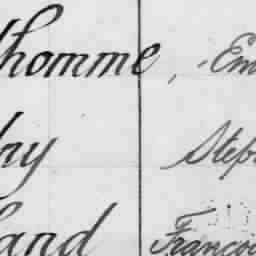 lhomme, Em
hy Step
land Françoi